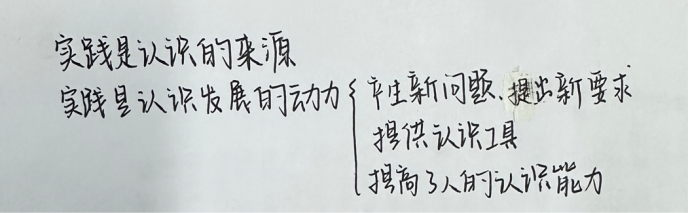 实践是认识的来源
实践是认识发展的动力{产生新问题、提出新要求
提供认识工具
提高了人的认识能力